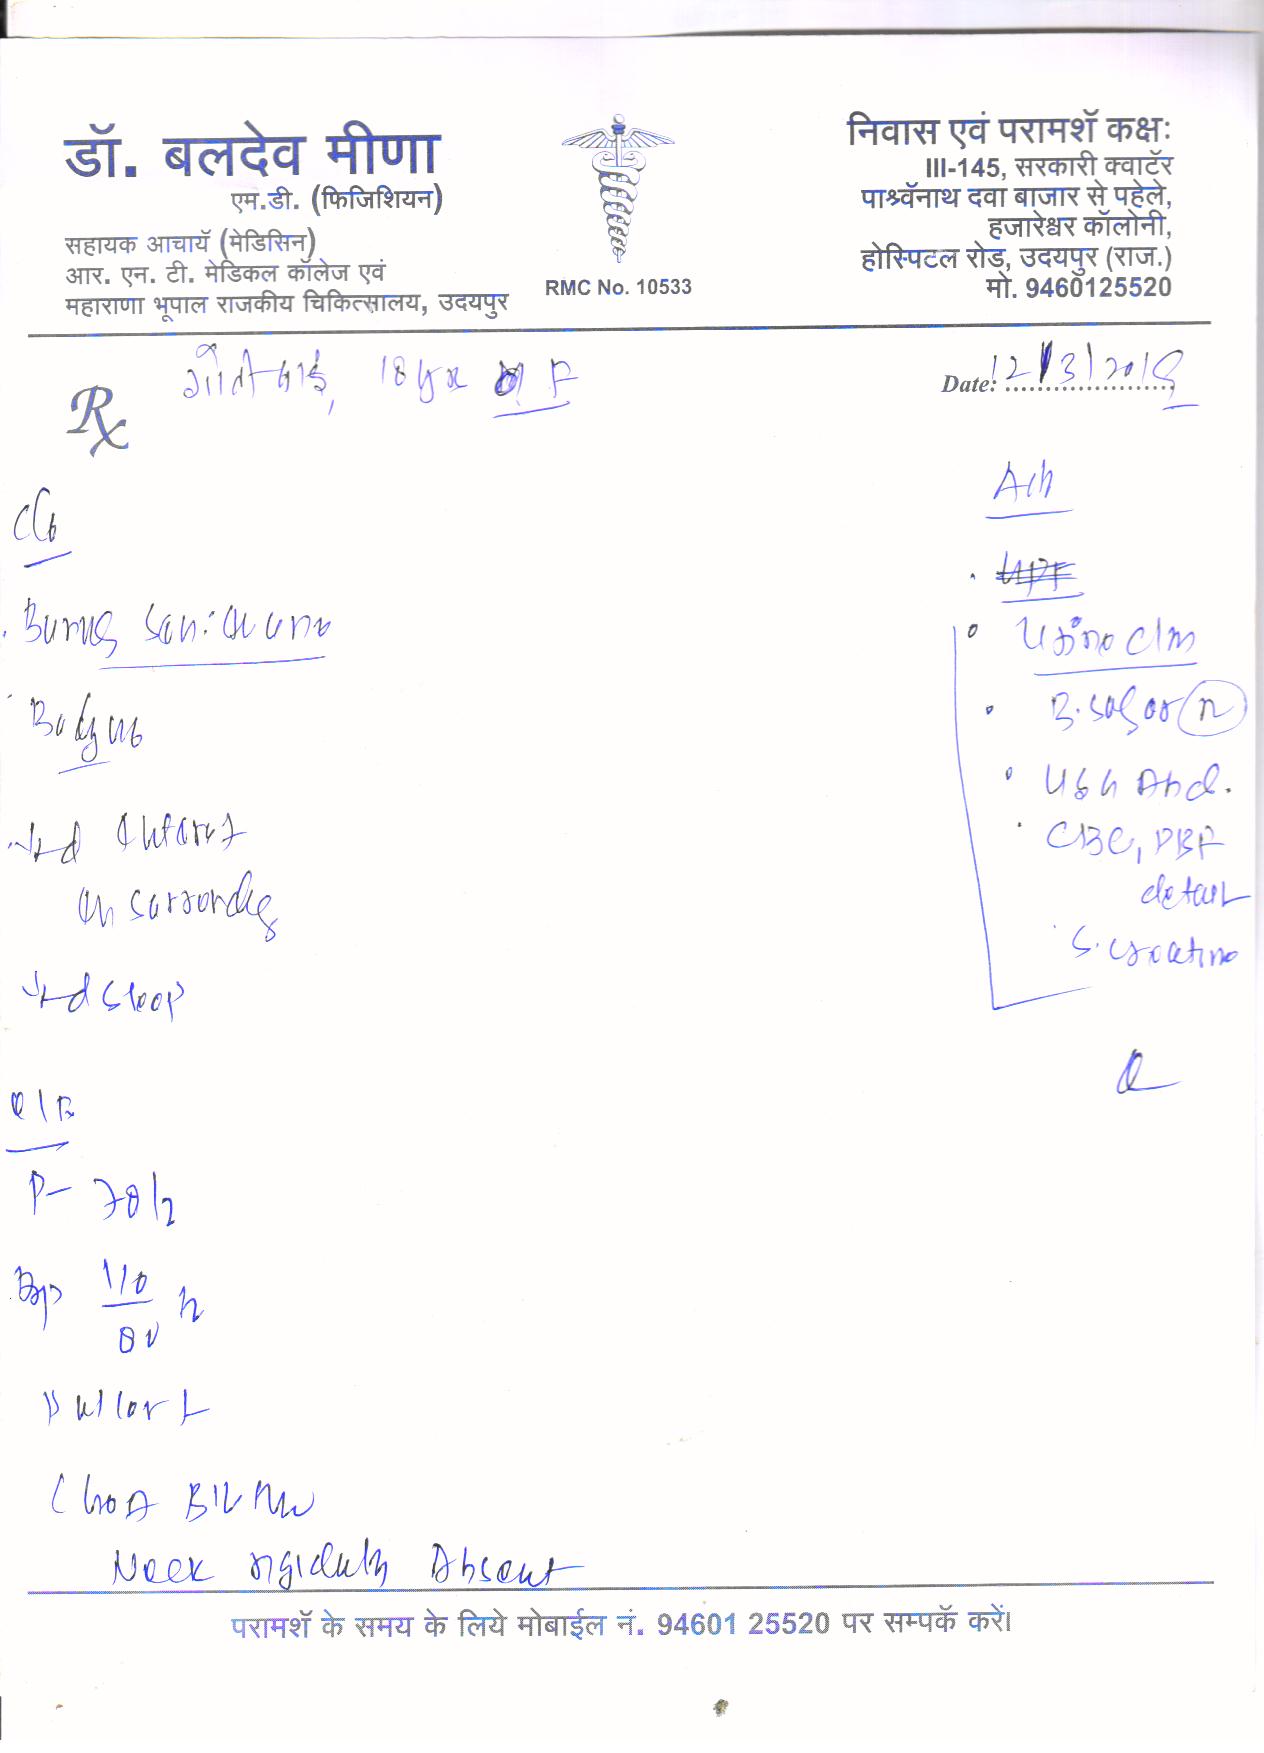 डॉ. बलदेव मीणा
एम.डी. (फिजिशियन)
सहायक आचार्य (मेडिसिन)
आर. एन. टी. मेडिकल कॉलेज एवं
महाराणा भूपाल राजकीय चिकित्सालय, उदयपुर
RMC No. 10533
निवास एवं परामर्श कक्षः
III-145, सरकारी क्वार्टर
पार्श्वनाथ दवा बाजार से पहेले,
हजारेश्वर कॉलोनी,
होस्पिटल रोड, उदयपुर (राज.)
मो. 9460125520
Rx
18 yr F
Date: 12/3/2019
Burning
Bodyache
Interest
in surronding
sleep
O/E
P- 78/
BP 110
80
n
Pallor
Chest B/L
Neck rigidity Absent
Adv
B. sugar (R)
USG Abd.
CBC, PBF
detail
S. creatine
परामर्श के समय के लिये मोबाईल नं. 94601 25520 पर सम्पर्क करें।